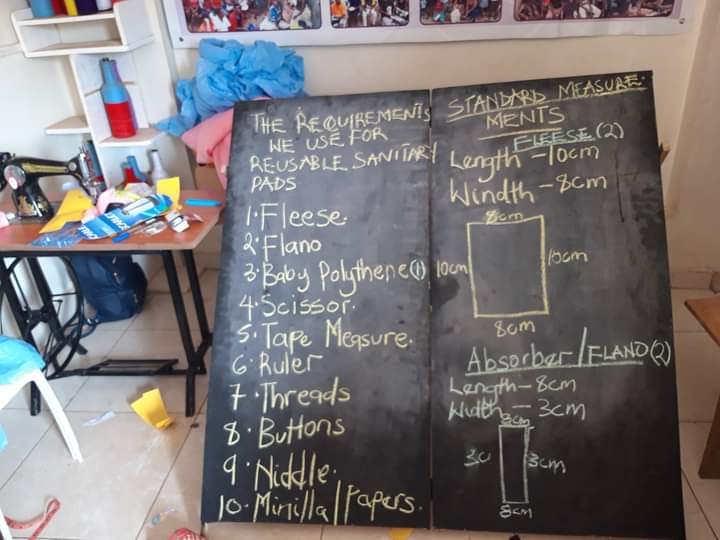 THE REQUIREMENTS
WE USE FOR
REUSABLE SANITARY
PADS
1. Fleese.
2. Flano
3. Baby Polythene (1)
4. Scissor.
5. Tape Measure.
6. Ruler
7. Threads
8. Buttons
9. Niddle.
10. Minilla/Papers.
STANDARD MEASURE-
MENTS
FLEESE (2)
Length - 10cm
Windth - 8cm
8cm
10cm
10cm
8cm
Absorber/FLANO (2)
Length - 8cm
Width - 3cm
3cm
3c
3cm
8cm